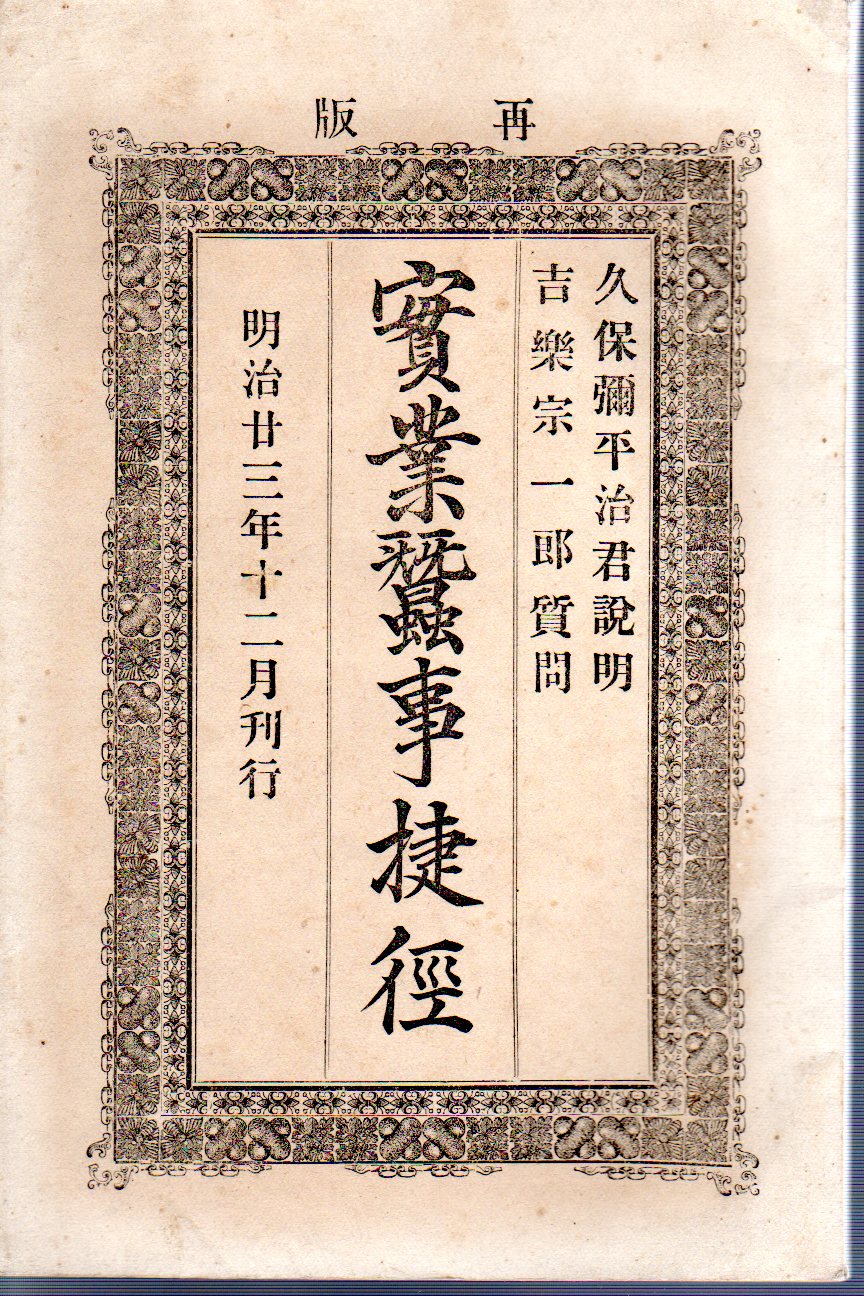 再版
久保彌平治君說明
吉樂宗一郎質問
實業蠶事捷徑
明治廿三年十二月刊行